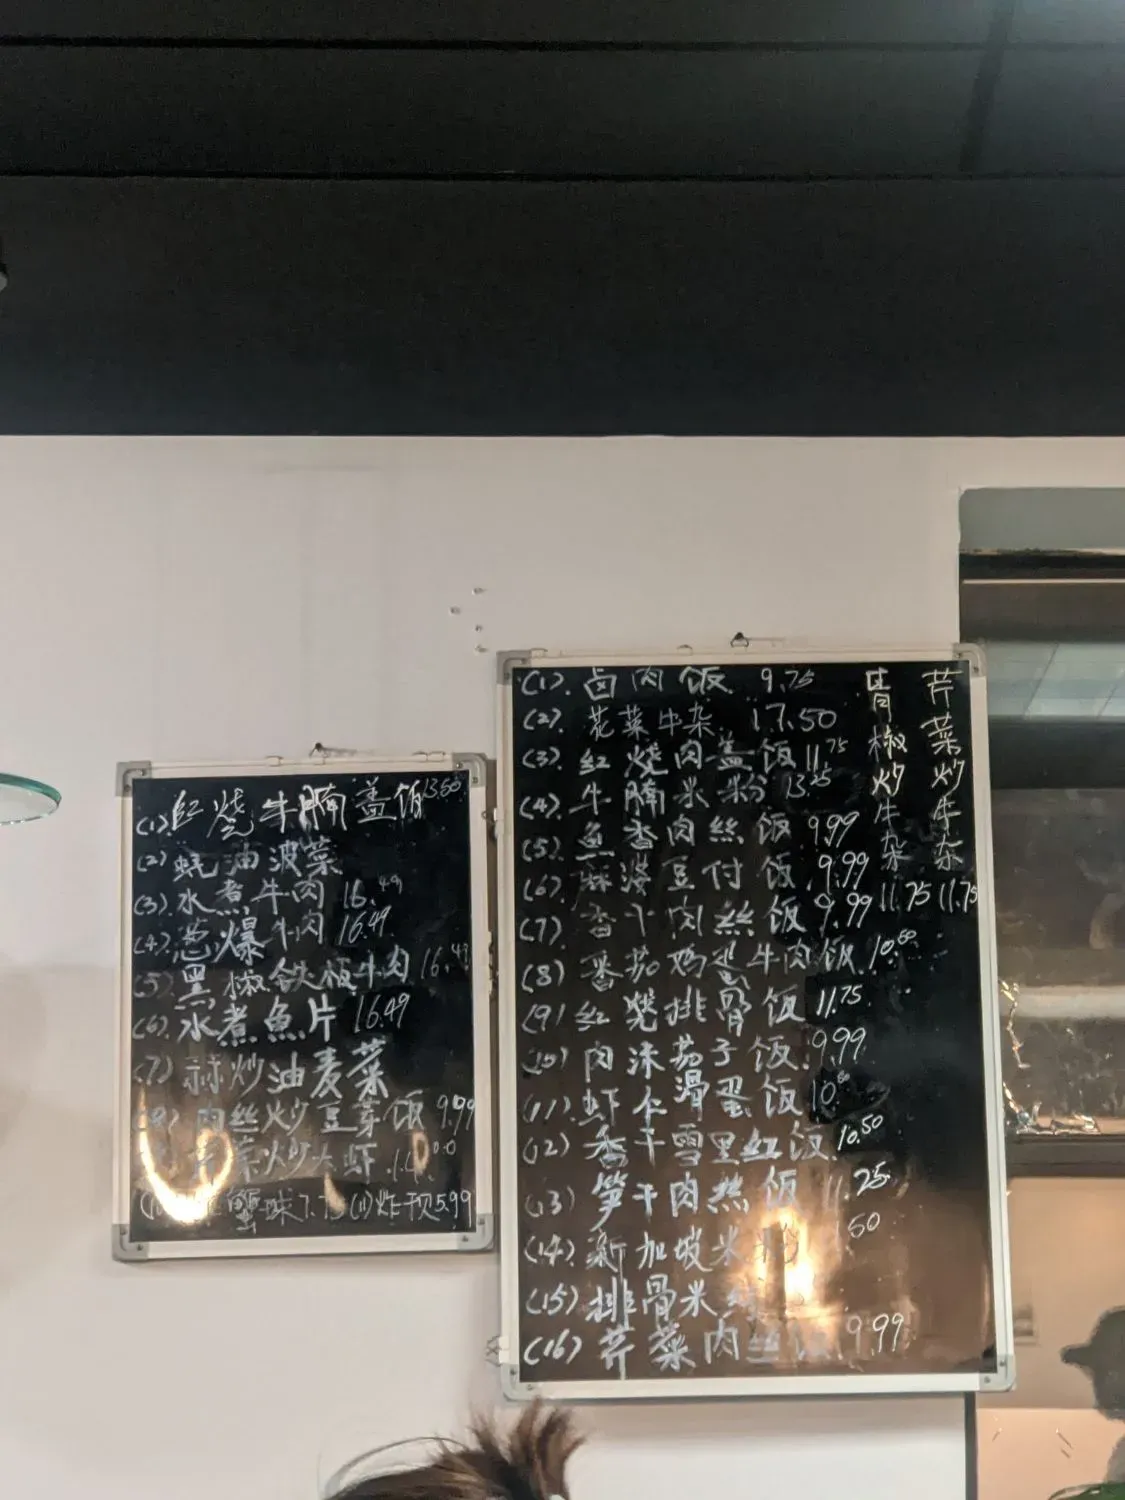 (1) 红烧牛腩盖饭 13.50
(2) 蚝油菠菜
(3) 水煮牛肉 16.49
(4) 葱爆牛肉 16.49
(5) 黑椒铁板牛肉 16.49
(6) 水煮魚片 16.49
(7) 蒜炒油麦菜
(8) 肉丝炒豆芽饭 9.99
炒大虾
蟹球 7.75 (11) 炸干贝 5.99
(1). 卤肉饭 9.75
(2). 花菜牛杂 17.50
(3). 红烧肉盖饭 11.75
(4). 牛腩米粉 13.25
(5). 鱼香肉丝饭 9.99
(6). 麻婆豆付饭 9.99
(7). 香干肉丝饭 9.99
(8) 番茄鸡蛋牛肉饭 10.50
(9) 红烧排骨饭 11.75
(10) 肉沫茄子饭 9.99
(11) 虾仁滑蛋饭 10.
(12) 香干雪里红饭 10.50
(13) 笋干肉丝饭 11.25
(14) 新加坡米粉 .50
(15) 排骨米线
(16) 芹菜肉丝饭 9.99
青椒炒牛杂 11.75
芹菜炒牛杂 11.75